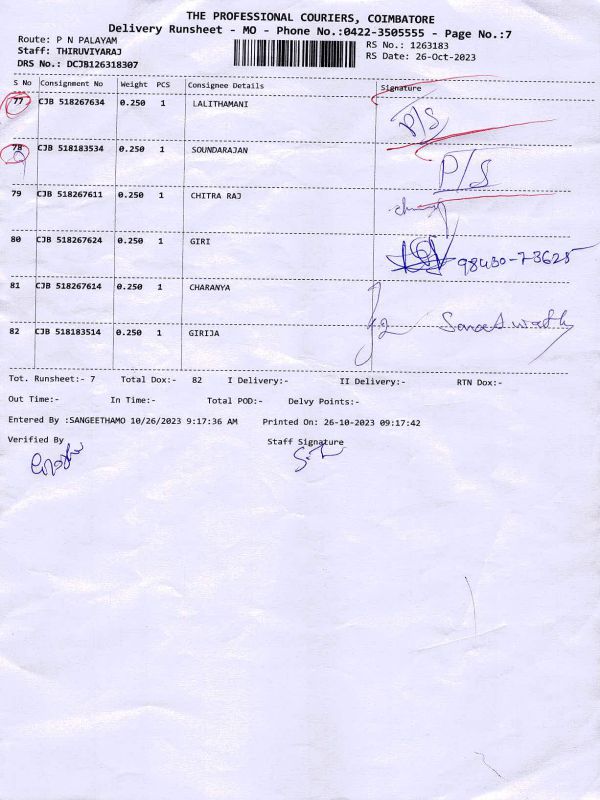 THE PROFESSIONAL COURIERS, COIMBATORE
Delivery Runsheet - MO - Phone No.:0422-3505555 - Page No.:7
Route: P N PALAYAM
RS No.: 1263183
Staff: THIRUVIYARAJ
RS Date: 26-Oct-2023
DRS No.: DCJB126318307
S No Consignment No Weight PCS Consignee Details Signature
77 CJB 518267634 0.250 1 LALITHAMANI P/S
78 CJB 518183534 0.250 1 SOUNDARAJAN P/S
79 CJB 518267611 0.250 1 CHITRA RAJ
80 CJB 518267624 0.250 1 GIRI 98430-73625
81 CJB 518267614 0.250 1 CHARANYA
82 CJB 518183514 0.250 1 GIRIJA
Tot. Runsheet:- 7 Total Dox:- 82 I Delivery:- II Delivery:- RTN Dox:-
Out Time:- In Time:- Total POD:- Delvy Points:-
Entered By :SANGEETHAMO 10/26/2023 9:17:36 AM Printed On: 26-10-2023 09:17:42
Verified By Staff Signature